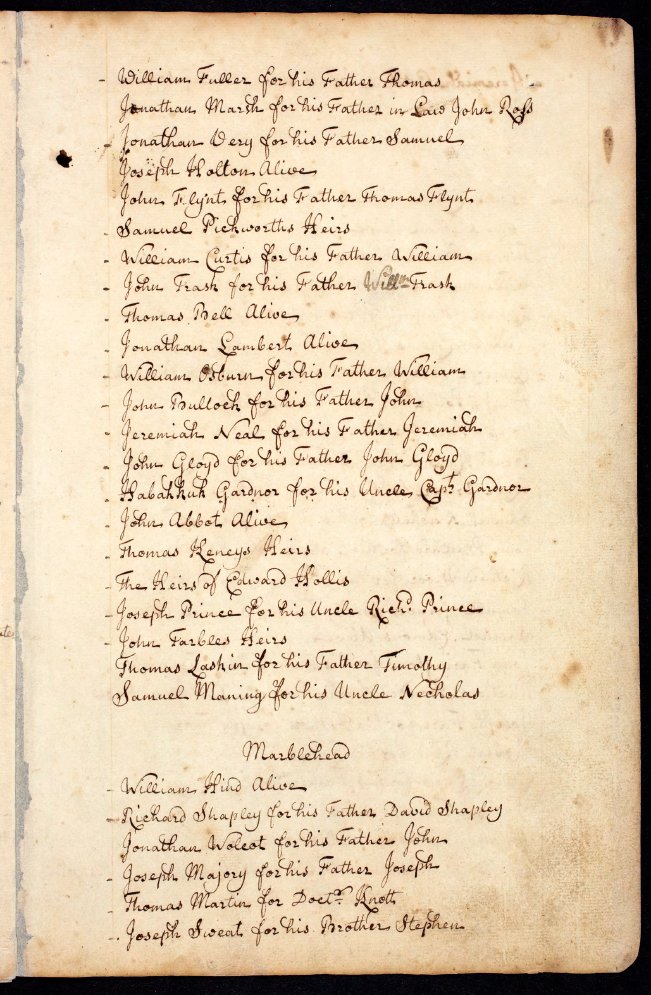 - William Fuller for his Father Thomas
Jonathan Marsh for his Father in Law John Ross
- Jonathan Very for his Father Samuel
Joseph Holton Alive
- John Flynt for his Father Thomas Flynt
- Samuel Pickworths Heirs
- William Curtis for his Father William
- John Trask for his Father Willm Trask
- Thomas Bell Alive
- Jonathan Lambert Alive
- William Osburn for his Father William
- John Bullock for his Father John
- Jeremiah Neal for his Father Jeremiah
- John Gloyd for his Father John Gloyd
- Habakkuk Gardnor for his Uncle Capt. Gardnor
- John Abbot Alive
- Thomas Keneys Heirs
- The Heirs of Edward Hollis
- Joseph Prince for his Uncle Richd. Prince
- John Farbles Heirs
Thomas Laskin for his Father Timothy
Samuel Maning for his Uncle Necholas
Marblehead
- William Hind Alive
- Richard Shapley for his Father David Shapley
Jonathan Wolcot for his Father John
- Joseph Majory for his Father Joseph
- Thomas Martin for Doctr. Knott
- Joseph Sweat for his Brother Stephen